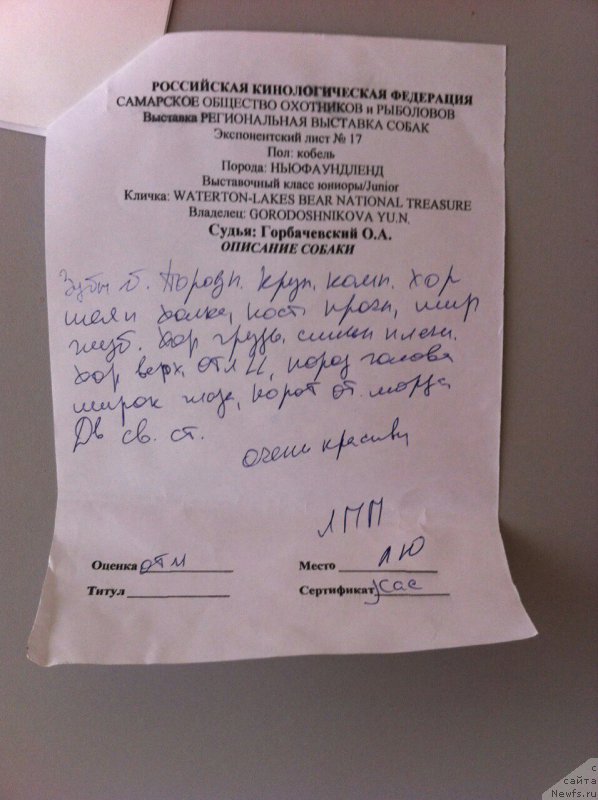 РОССИЙСКАЯ КИНОЛОГИЧЕСКАЯ ФЕДЕРАЦИЯ
САМАРСКОЕ ОБЩЕСТВО ОХОТНИКОВ и РЫБОЛОВОВ
Выставка РЕГИОНАЛЬНАЯ ВЫСТАВКА СОБАК
Экспонентский лист № 17
Пол: кобель
Порода: НЬЮФАУНДЛЕНД
Выставочный класс юниоры/Junior
Кличка: WATERTON-LAKES BEAR NATIONAL TREASURE
Владелец: GORODOSHNIKOVA YU.N.
Судья: Горбачевский О.А.
ОПИСАНИЕ СОБАКИ
Зубы б. Породн. Круп. комп. хор
шея и холка, кость прочн, шир
хор верх, отл, пород голова
широк глаза, корот от морда
Дв св. ст.
очень красивы
ЛПП
Оценка отл Место ЛЮ
Титул Сертификат Jcac
с
сайта
Newfs.ru